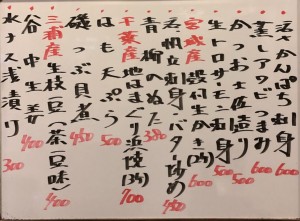 えぼだい かんぱち 刺身 600
蒸しアワビつまみ 600
かつお土佐造り 500
生トロサーモン刺身 500
宮城産 殻付生かき(1ヶ) 600
活帆立 刺身・バター炒め 450
青柳のぬた 380
千葉産 地はまぐり浜焼(3ヶ) 700
はも天ぷら 500
磯つぶ貝煮 450
三浦産 生枝豆(茶豆味) 400
谷中生姜 400
水ナス浅漬け 300